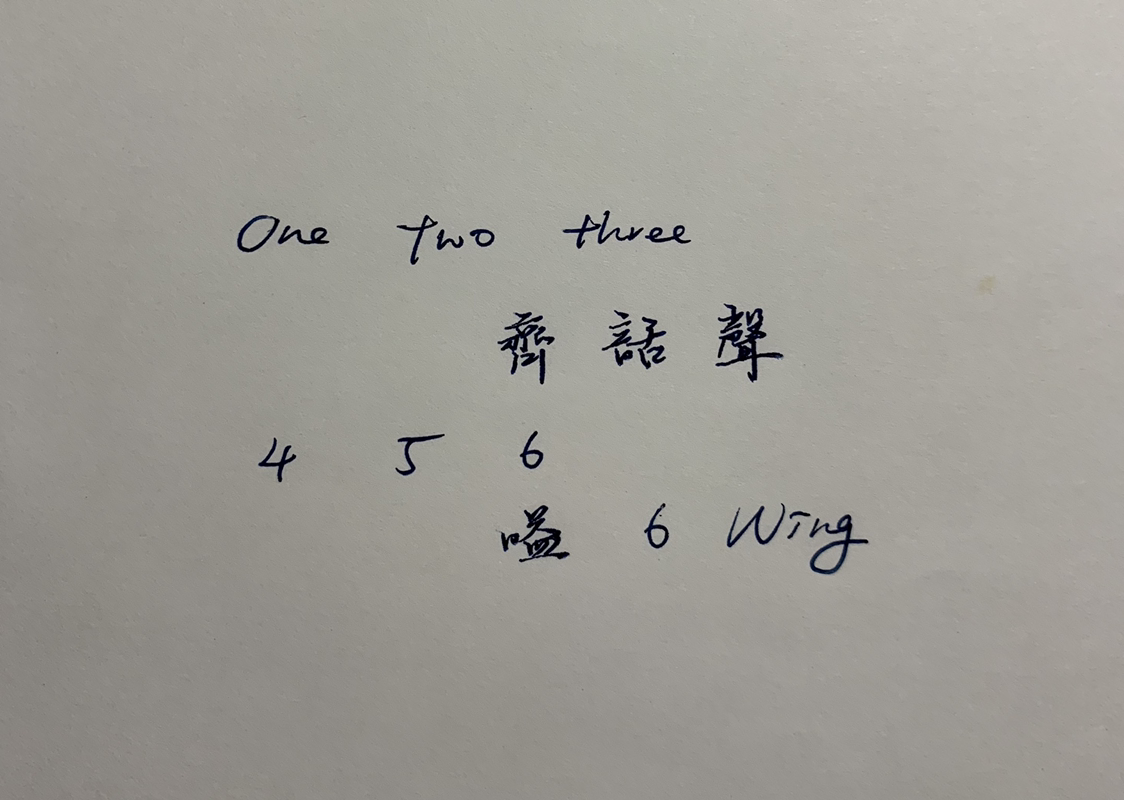 One two three
齊話聲
4 5 6
嗌 6 Wing